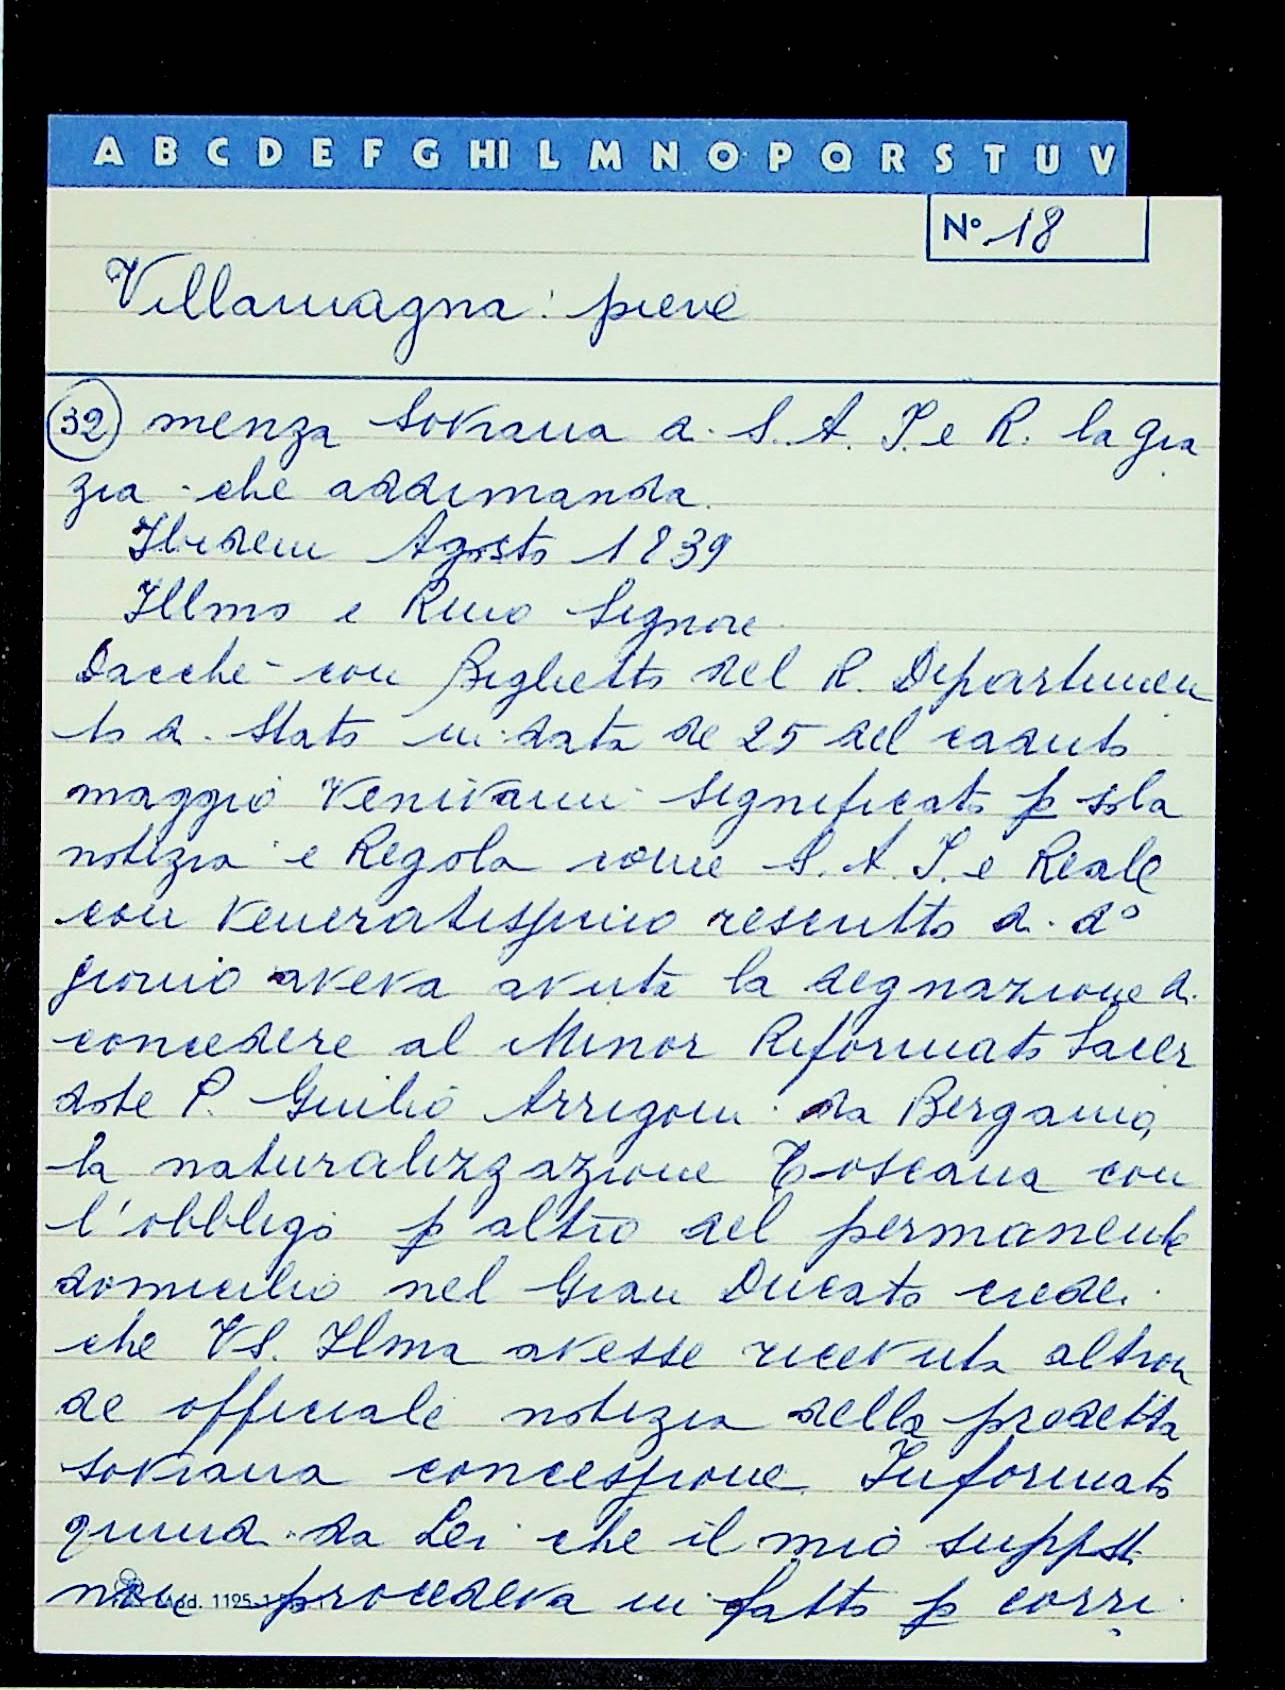 A B C D E F G HI L M N O P Q R S T U V
N° 18
Villamagna: pieve
32 menza sovrana a S. A. I. e R. la gra
zia che addimanda.
Ibidem Agosto 1839
Illmo e Rmo Signore
Dacche con Biglietto del R. Departimen
to di Stato in data de 25 del caduto
maggio venivami significato p sola
notizia e Regola come S. A. I. e Reale
con veneratissimo rescritto di d°
giorno aveva avuta la degnazione di
concedere al Minor Riformato Sacer
dote P. Giulio Arrigoni da Bergamo,
la naturalizzazione Toscana con
l'obbligo p altro del permanente
domicilio nel Gran Ducato credei
che VS. Illma avesse ricevuta altron
de officiale notizia della predetta
sovrana concessione. Informato
quindi da Lei che il mio suppsto
non procedeva in fatto p corri